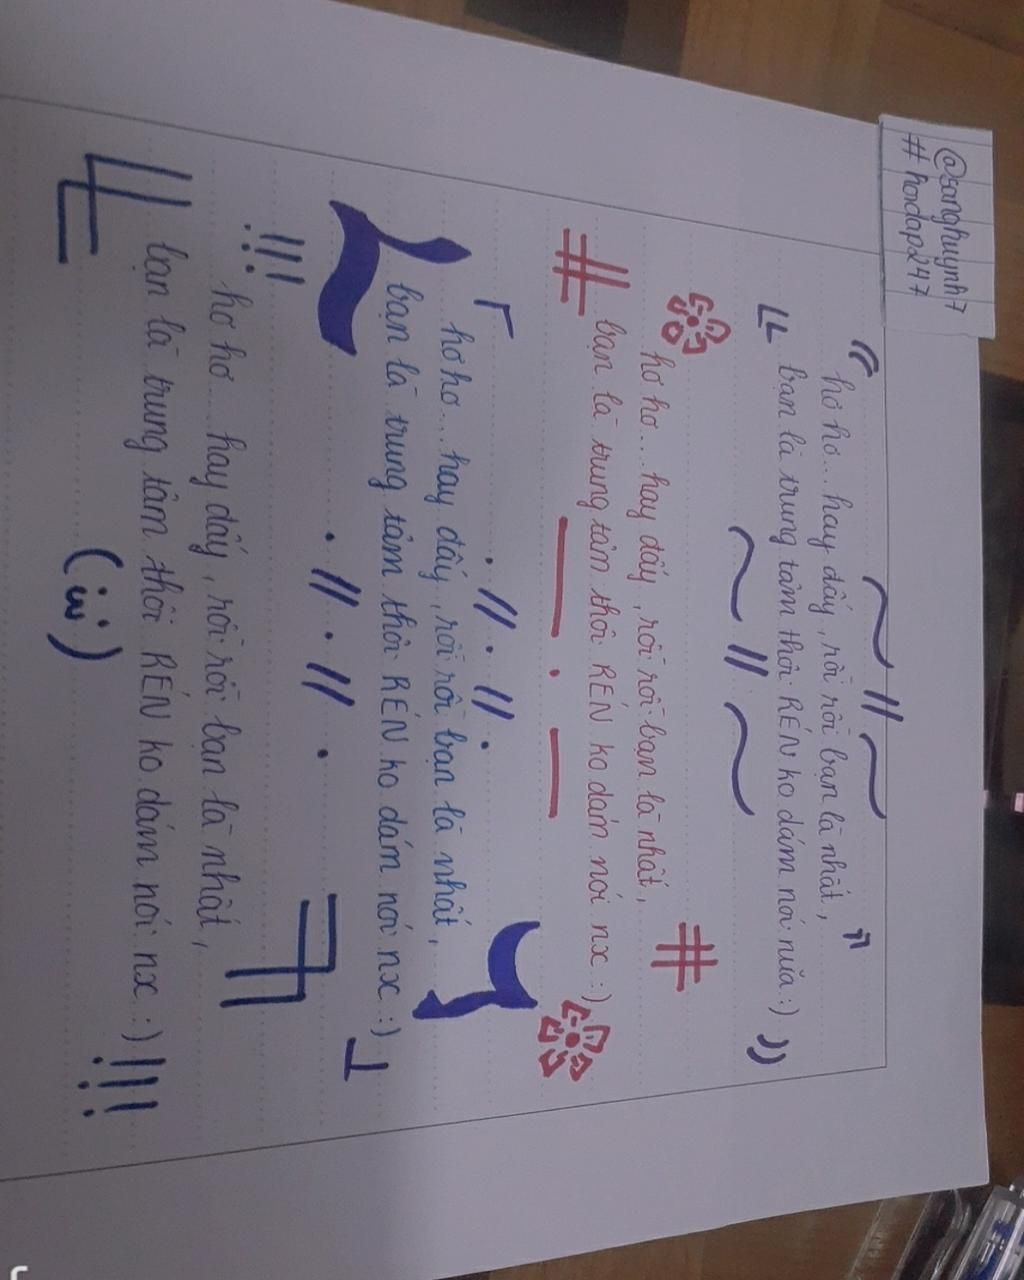 @sanghuynh7
#hoidap247
hơ hơ... hay đấy, rồi rồi bạn là nhất,
bạn là trung tâm thôi RÉN ko dám nói nữa :)
hơ hơ... hay đấy, rồi rồi bạn là nhất,
bạn là trung tâm thôi RÉN ko dám nói nx :)
hơ hơ... hay đấy, rồi rồi bạn là nhất,
bạn là trung tâm thôi RÉN ko dám nói nx :)
!!! hơ hơ... hay đấy, rồi rồi bạn là nhất,
bạn là trung tâm thôi RÉN ko dám nói nx :) !!!